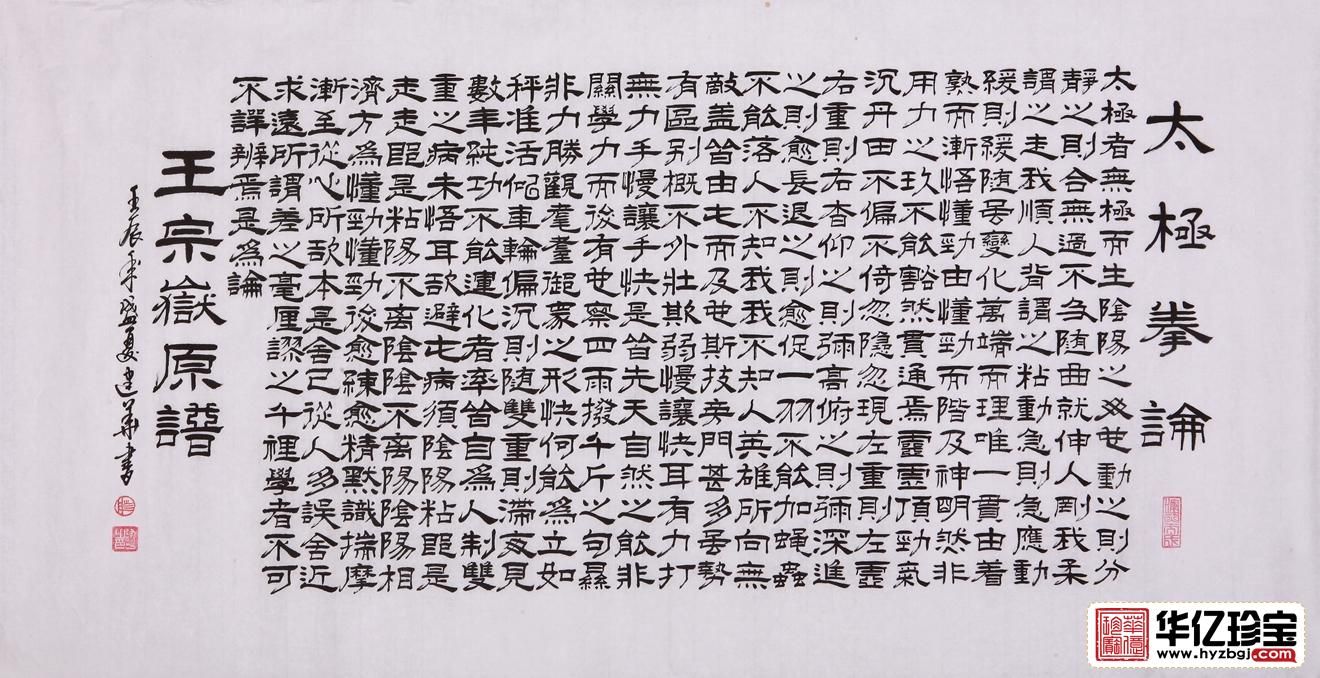 太極拳論
太極者無極而生陰陽之母也動之則分
靜之則合無過不及随曲就伸人剛我柔
謂之走我順人背謂之粘動急則急應動
緩則緩随虽變化萬端而理唯一貫由着
熟而漸悟懂勁由懂勁而階及神明然非
用力之久不能豁然貫通焉靈靈頂勁氣
沉丹田不偏不倚忽隱忽現左重則左虛
右重則右杳仰之則彌高俯之則彌深進
之則愈長退之則愈促一羽不能加蝇蟲
不能落人不知我我不知人英雄所向無
敵盖皆由此而及也斯技旁門甚多虽勢
有區别概不外壯欺弱慢讓快耳有力打
無力手慢讓手快是皆先天自然之能非
關學力而後有也察四兩撥千斤之句顯
非力勝觀耄耋御眾之形快何能為立如
秤准活似車輪偏沉則随雙重則滯每見
數年純功不能運化者率皆自為人制雙
重之病未悟耳欲避此病須陰陽粘即是
走走即是粘陽不離陰陰不離陽陰陽相
濟方為懂勁懂勁後愈練愈精默識揣摩
漸至從心所欲本是舍己從人多誤舍近
求遠所謂差之毫厘謬之千裡學者不可
不詳辨焉是為論
王宗嶽原譜
壬辰年盛夏建華書
华亿珍宝
www.hyzbgj.com